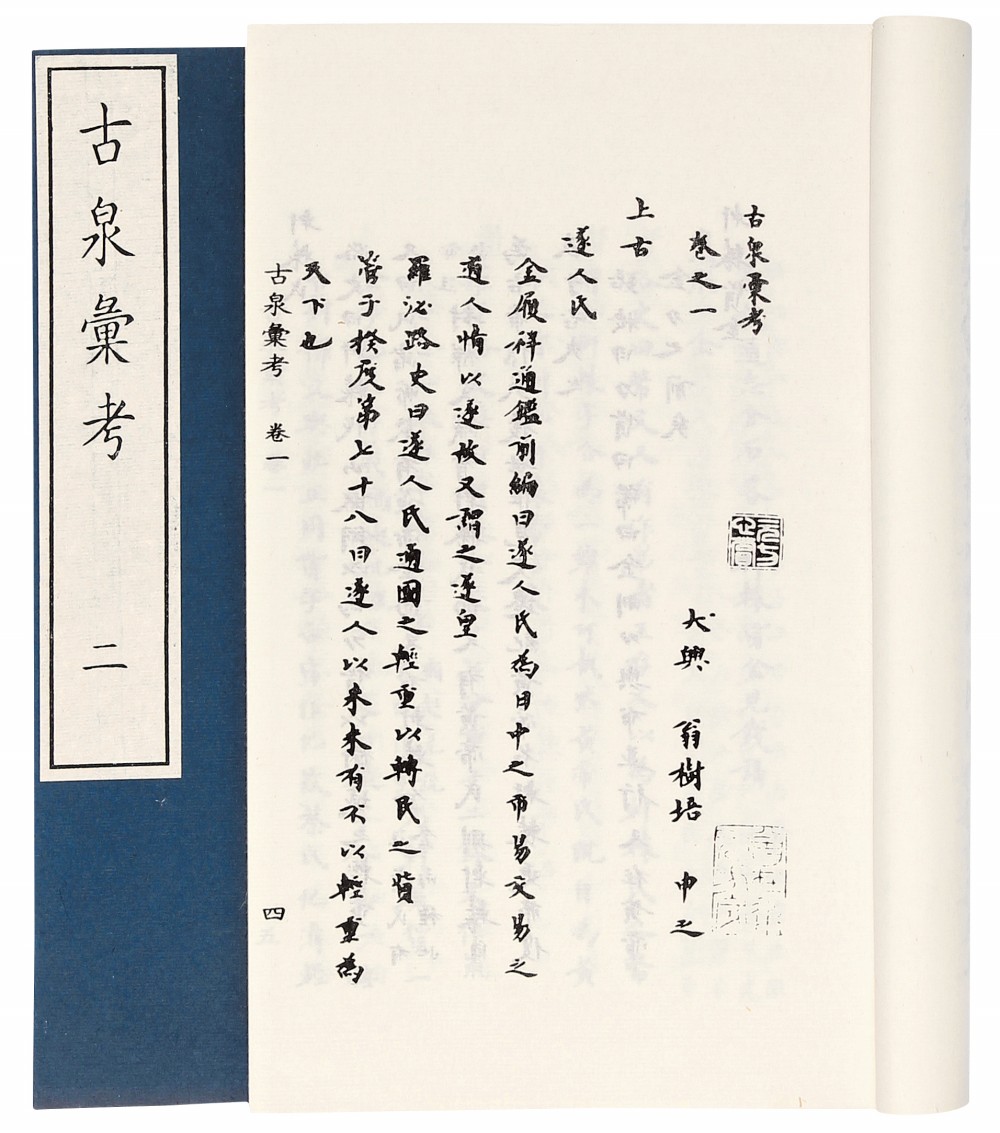 古泉彙考
二
古泉彙考
卷之一 大興 翁樹培 申之
上古
遂人氏
金履祥通鑑前編曰遂人氏為日中之市易交易之
道人情以遂故又謂之遂皇
羅泌路史曰遂人氏通國之輕重以轉民之貨
管子揆度第七十八曰遂人以來未有不以輕重為
天下也
古泉彙考 卷一 四